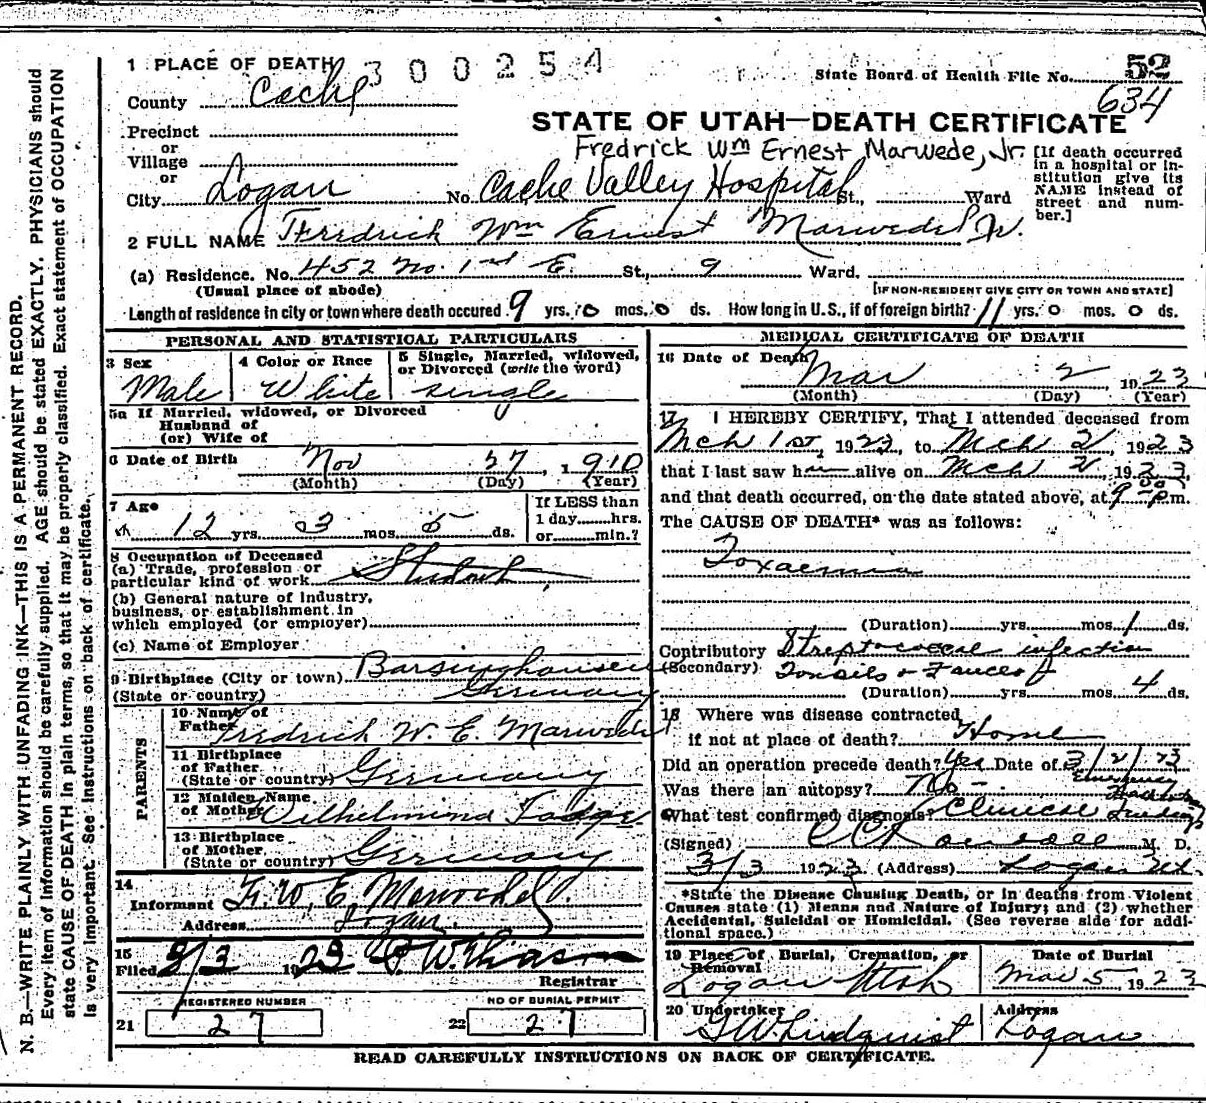 N. B.—WRITE PLAINLY WITH UNFADING INK—THIS IS A PERMANENT RECORD.
Every item of information should be carefully supplied. AGE should be stated EXACTLY. PHYSICIANS should
state CAUSE OF DEATH in plain terms, so that it may be properly classified. Exact statement of OCCUPATION
is very important. See Instructions on back of certificate.
1 PLACE OF DEATH 300254 State Board of Health File No. 52
County Cache 634
STATE OF UTAH—DEATH CERTIFICATE
Precinct
or
Village
or
Fredrick Wm Ernest Marwede, Jr.
[If death occurred in a hospital or institution give its NAME instead of street and number.]
City Logan No. Cache Valley Hospital St., Ward
2 FULL NAME Fredrick Wm Ernest Marwede Jr.
(a) Residence. No. 452 No. 1st E. St., 9 Ward.
(Usual place of abode) [IF NON-RESIDENT GIVE CITY OR TOWN AND STATE]
Length of residence in city or town where death occured 9 yrs. 0 mos. 0 ds. How long in U.S., if of foreign birth? 11 yrs. 0 mos. 0 ds.
PERSONAL AND STATISTICAL PARTICULARS
3 Sex Male
4 Color or Race White
5 Single, Married, widowed, or Divorced (write the word) single
5a If Married, widowed, or Divorced
Husband of
(or) Wife of
6 Date of Birth Nov 27, 1910
(Month) (Day) (Year)
7 Age 12 yrs. 3 mos. 5 ds.
If LESS than
1 day hrs.
or min.?
8 Occupation of Deceased
(a) Trade, profession or
particular kind of work Student
(b) General nature of Industry,
business, or establishment in
which employed (or employer)
(c) Name of Employer
9 Birthplace (City or town) Barsinghausen
(State or country) Germany
PARENTS
10 Name of
Father Fredrick W. E. Marwede
11 Birthplace
of Father
(State or country) Germany
12 Maiden Name
of Mother Wilhelmina
13 Birthplace
of Mother
(State or country) Germany
14
Informant F. W. E.
Address Logan
15
Filed 3/3 1923
Registrar
REGISTERED NUMBER
21 27
NO OF BURIAL PERMIT
22 27
MEDICAL CERTIFICATE OF DEATH
16 Date of Death Mar 2, 1923
(Month) (Day) (Year)
17 I HEREBY CERTIFY, That I attended deceased from
Mch 1st, 1923, to Mch 2, 1923
that I last saw him alive on Mch 2, 1923,
and that death occurred, on the date stated above, at 9 p.m.
The CAUSE OF DEATH* was as follows:
Toxaemia
(Duration) yrs. mos. 1 ds.
Contributory Streptococcal infection
(Secondary) Tonsils & Fauces
(Duration) yrs. mos. 4 ds.
18 Where was disease contracted
if not at place of death? Home
Did an operation precede death? Yes Date of 3/2/23
Emergency
Was there an autopsy? No
What test confirmed diagnosis? Clinical findings
(Signed) M. D.
3/3 1923 (Address) Logan Ut.
*State the Disease Causing Death, or in deaths from Violent
Causes state (1) Means and Nature of Injury; and (2) whether
Accidental, Suicidal or Homicidal. (See reverse side for addi-
tional space.)
19 Place of Burial, Cremation, or
Removal
Logan Utah
Date of Burial
Mar 5, 1923
20 Undertaker
G W Lindquist
Address
Logan
READ CAREFULLY INSTRUCTIONS ON BACK OF CERTIFICATE.